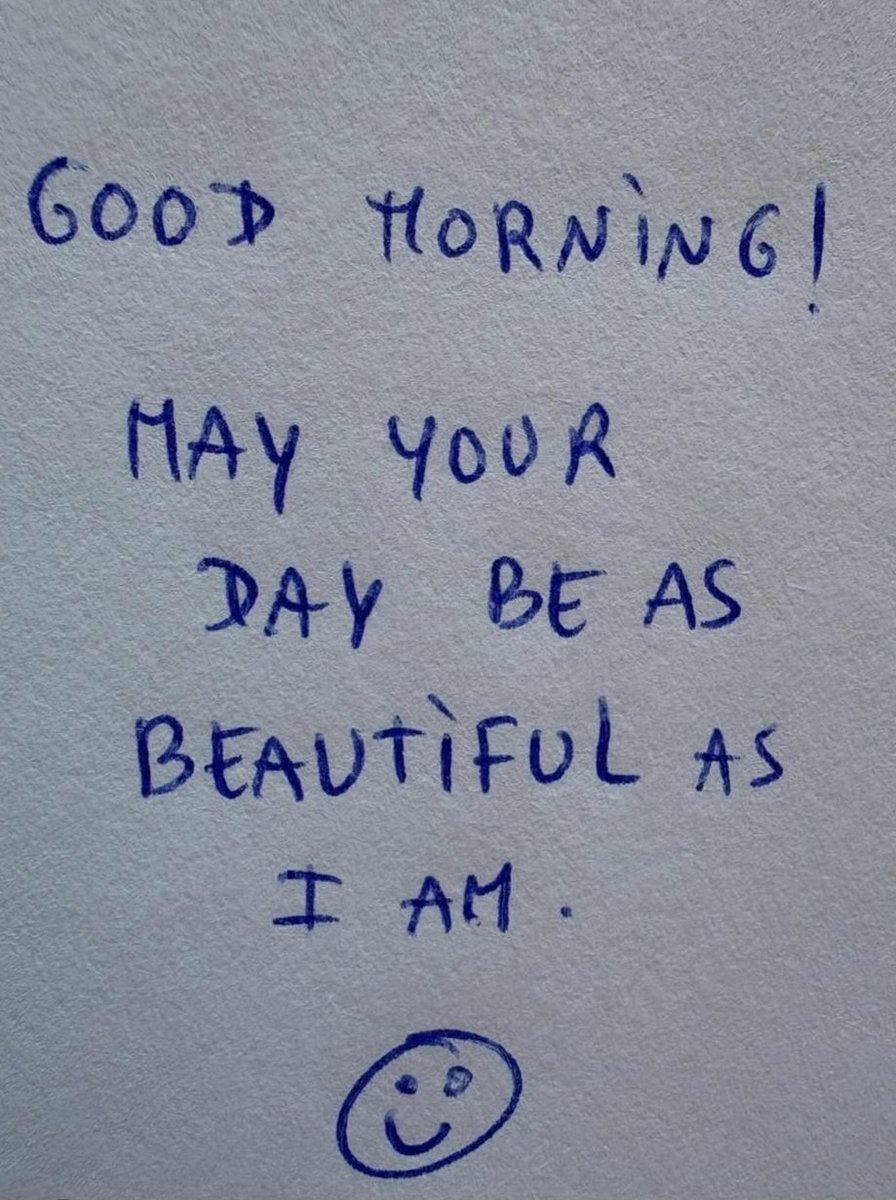 GOOD MORNING!
MAY YOUR
DAY BE AS
BEAUTIFUL AS
I AM.